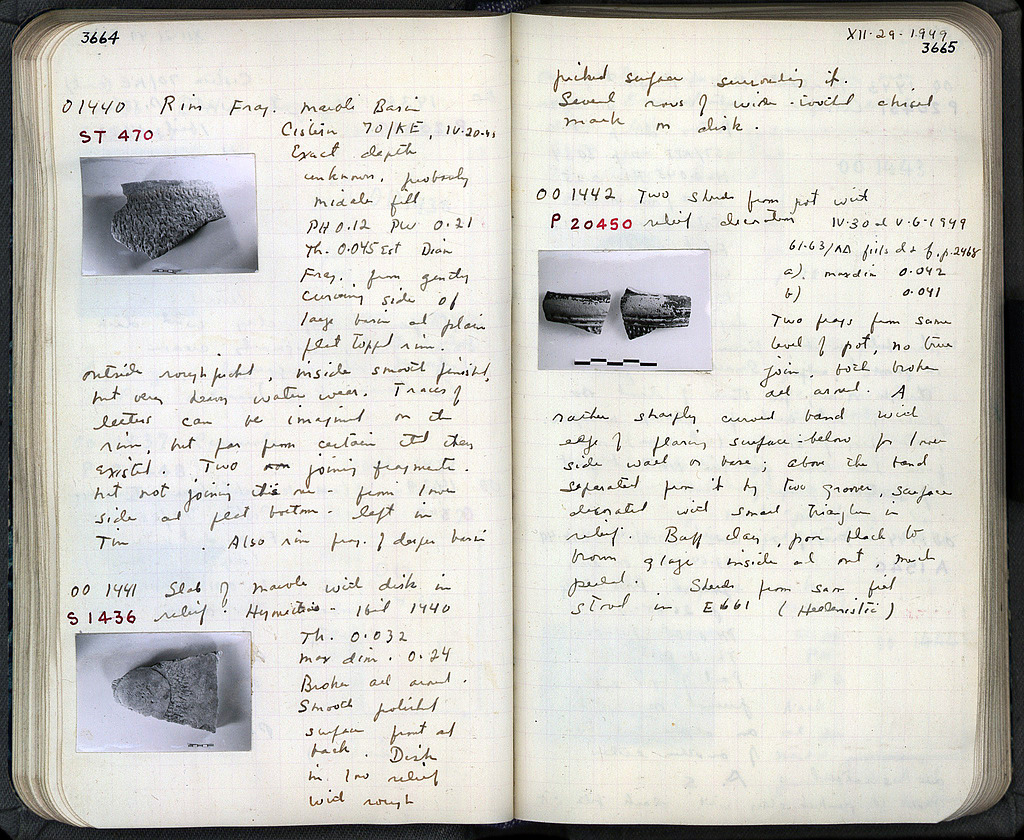 3664
O 1440 Rim Frag. marble Basin
ST 470
Cistern 70/KE, IV-20-
Exact depth
unknown, probably
middle fill
PH 0.12 PW 0.21
Th. 0.045 Est Diam
Frag. from gently
curving side of
large basin and plain
flat topped rim.
outside rough picked, inside smooth finished,
but very heavy water wear. Traces of
letters can be imagined on the
rim, but far from certain that they
existed. Two joining fragments.
but not joining this one - from lower
side and flat bottom - left in
Tin. Also rim frag. of larger basin
OO 1441 Slab of marble with disk in
S 1436 relief. Hymettian - like 1440
Th. 0.032
max dim. 0.24
Broken all around.
Smooth polished
surface front and
back. Disk
in low relief
with rough
XII-29-1949
3665
picked surface surrounding it.
Several rows of wide-toothed chisel
mark on disk.
OO 1442 Two sherds from pot with
P 20450 relief decoration IV-30 and V-6-1949
61-63/ΛΔ fills d + f, p. 2468
a). max dim 0.042
b) 0.041
Two frags from same
level of pot, no true
join, both broken
all around. A
rather sharply curved band with
edge of flaring surface below for lower
side wall or base; above the band
separated from it by two grooves, surface
decorated with small triangles in
relief. Buff clay, poor black to
brown glaze inside and out, much
peeled. Sherds from same fill
stored in E661 (Hellenistic)